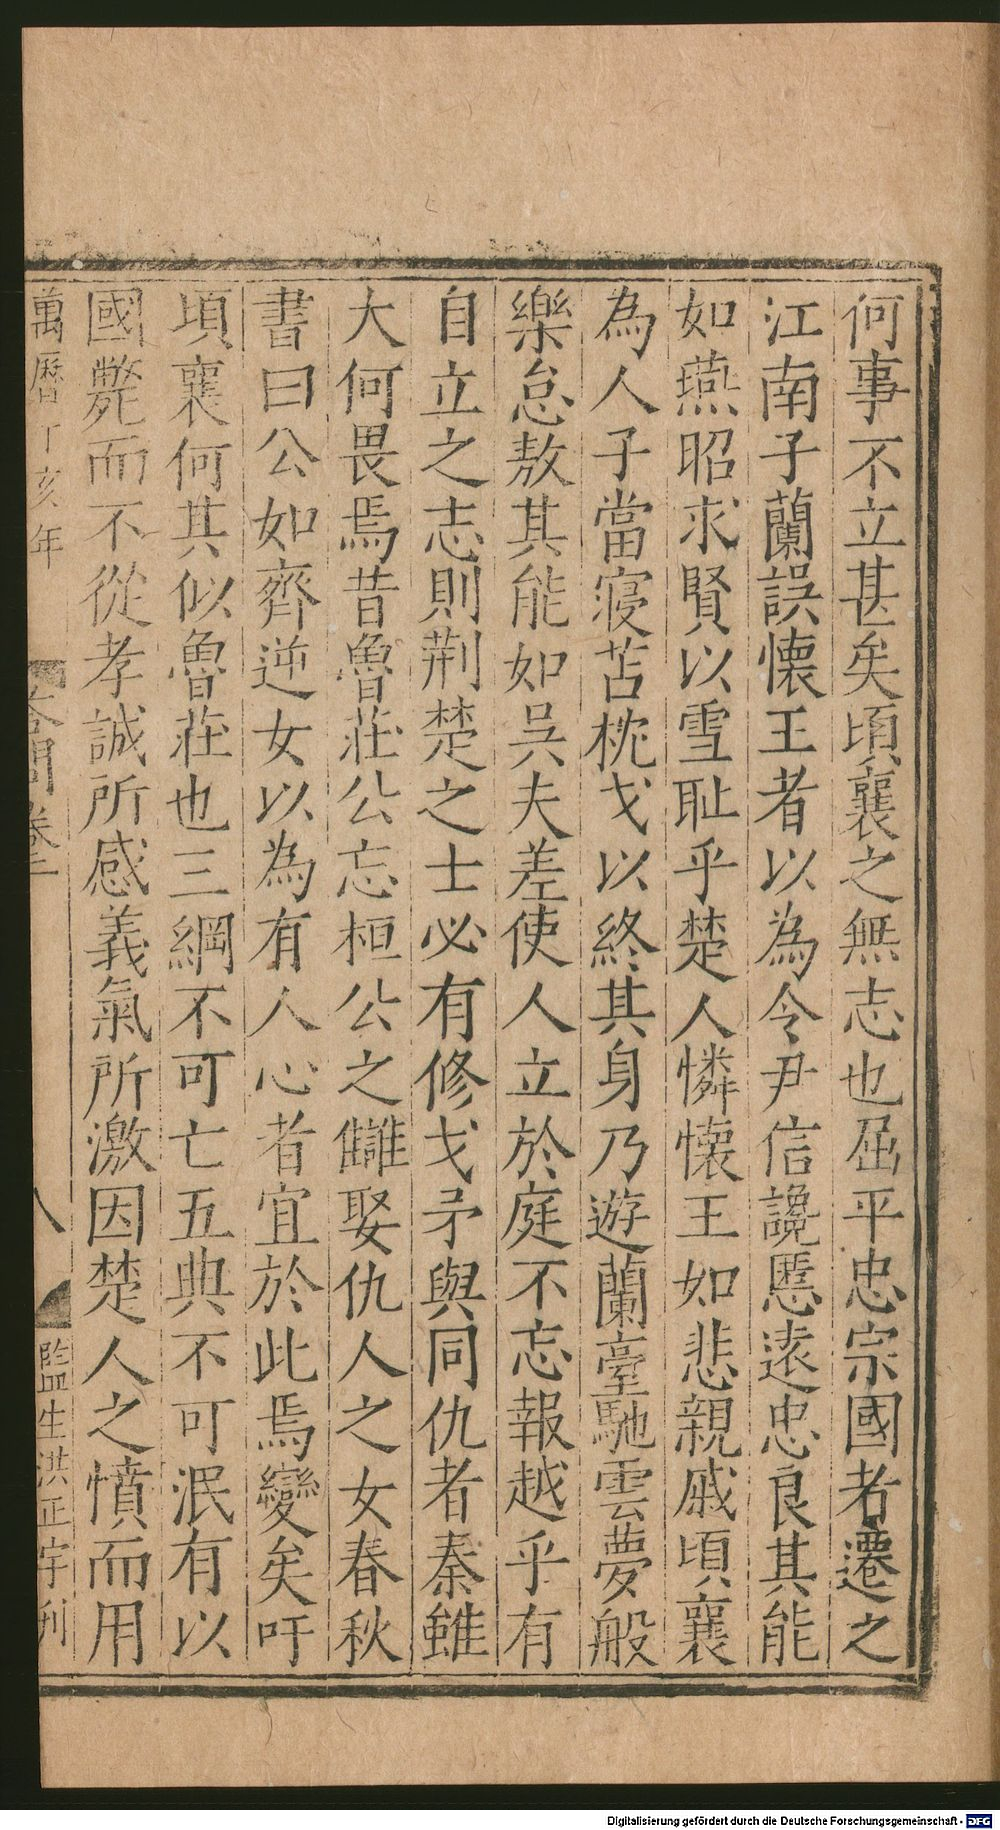 何事不立甚矣頃襄之無志也屈平忠宗國者遷之
江南子蘭誤懐王者以為令尹信讒慝逺忠良其能
如燕昭求賢以雪耻乎楚人憐懐王如悲親戚頃襄
為人子當寢苫枕戈以終其身乃遊蘭臺馳雲夢般
樂怠敖其能如吳夫差使人立於庭不忘報越乎有
自立之志則荆楚之士必有修戈矛與同仇者秦雖
大何畏焉昔魯莊公忘桓公之讎娶仇人之女春秋
書曰公如齊逆女以為有人心者宜於此焉變矣吁
頃襄何其似魯莊也三綱不可亡五典不可泯有以
國斃而不從孝誠所感義氣所激因楚人之憤而用
萬曆丁亥年 答問卷二 八 監生洪正宇刋
Digitalisierung gefördert durch die Deutsche Forschungsgemeinschaft - DFG